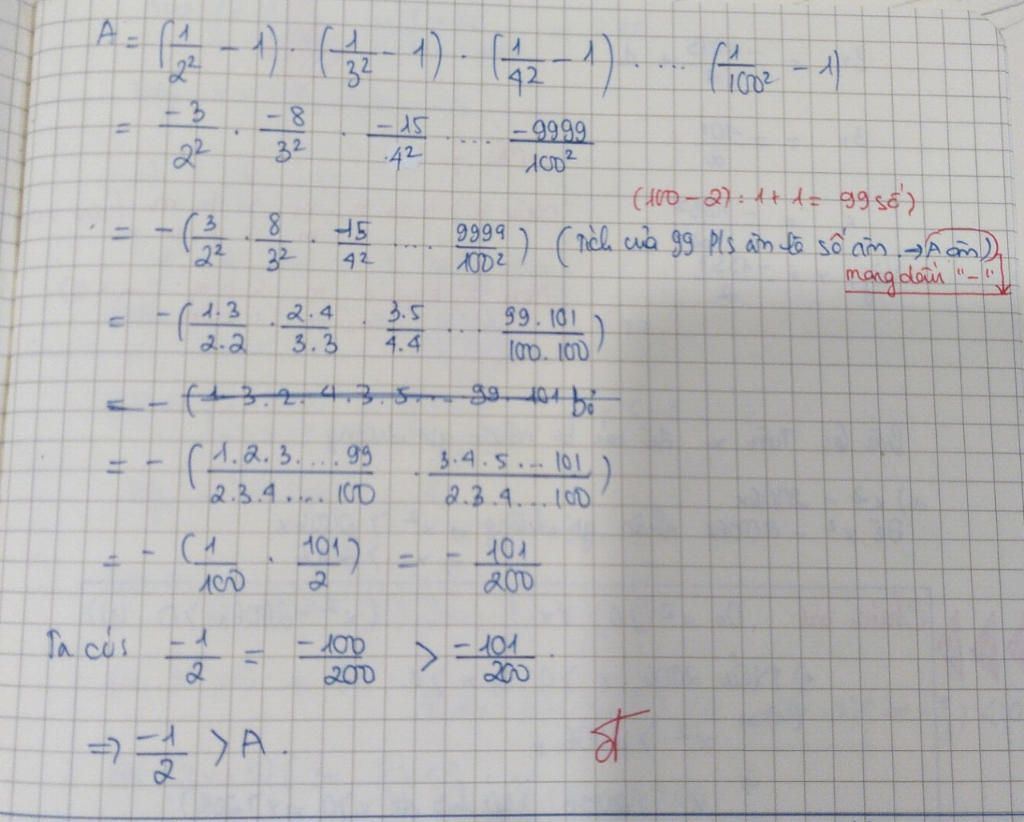 A = (1/2² - 1) . (1/3² - 1) . (1/4² - 1) . .... (1/100² - 1)
= -3/2² . -8/3² . -15/4² .... -9999/100²
(100 - 2) : 1 + 1 = 99 số)
= -(3/2² . 8/3² . 15/4² .... 9999/100²) (Tích của 99 P/s âm là số âm. → A âm)
mang dấu "-"
= -(1.3/2.2 . 2.4/3.3 . 3.5/4.4 ... 99.101/100.100)
= -(1.3.2.4.3.5.... 99.101 bỏ
= -(1.2.3.....99/2.3.4.....100 . 3.4.5...101/2.3.4...100)
= -(1/100 . 101/2) = - 101/200
Ta có: -1/2 = -100/200 > -101/200.
⇒ -1/2 > A.